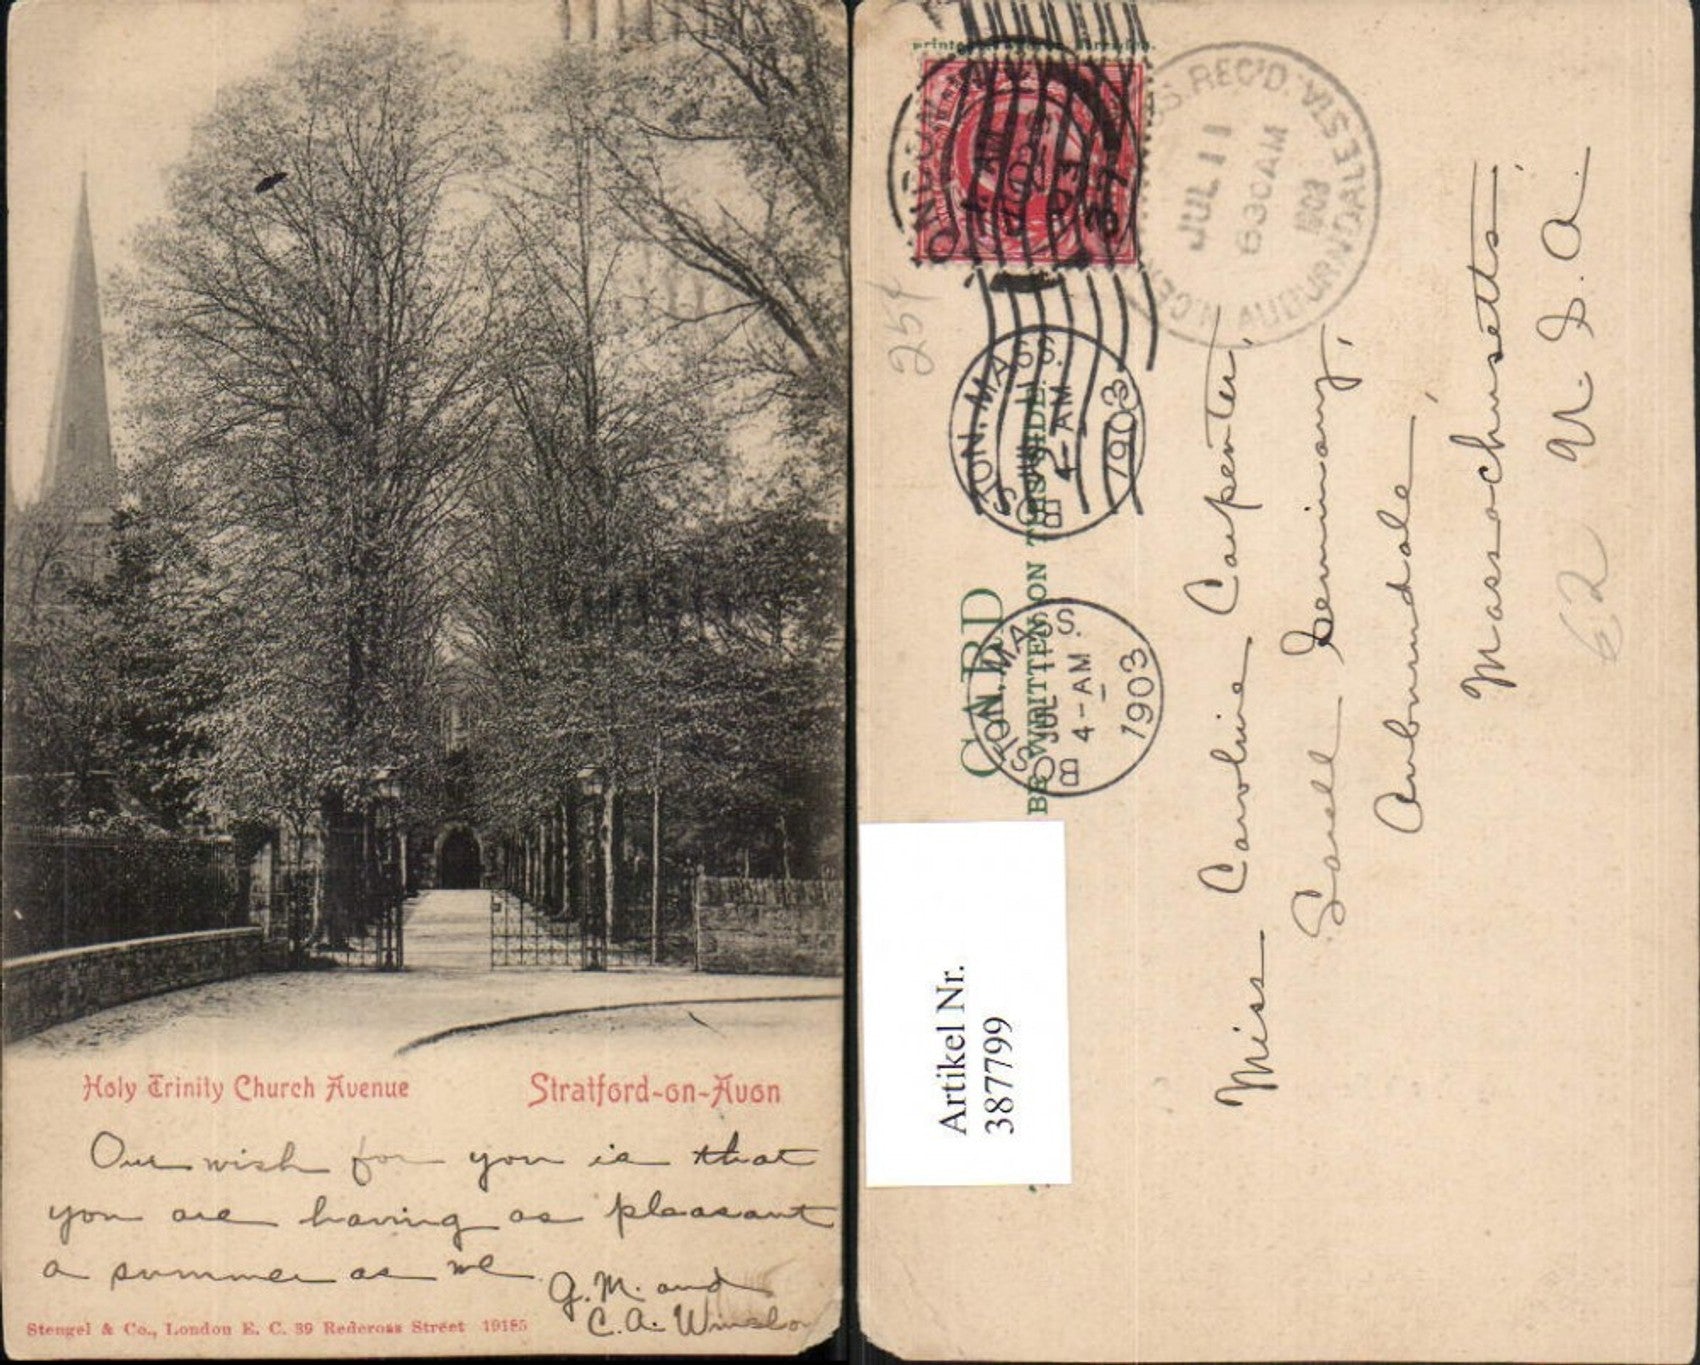 Holy Trinity Church Avenue
Stratford-on-Avon
Our wish for you is that
you are having as pleasant
a summer as we
G. M. and
C. A. Winslow
Stengel & Co., London E. C. 39 Redcross Street 19185
CARD
BE WRITTEN ON THIS SIDE.
LONDON
AM
03
BOSTON. MASS.
4-AM
1903
BOSTON. MASS.
JUL 11
4-AM
1903
REC'D.
JUL 11
630AM
1903
AUBURNDALE STA
25¢
Miss Caroline Carpenter,
Lasell Seminary,
Auburndale,
Massachusetts,
U. S. A.
62
Artikel Nr.
387799